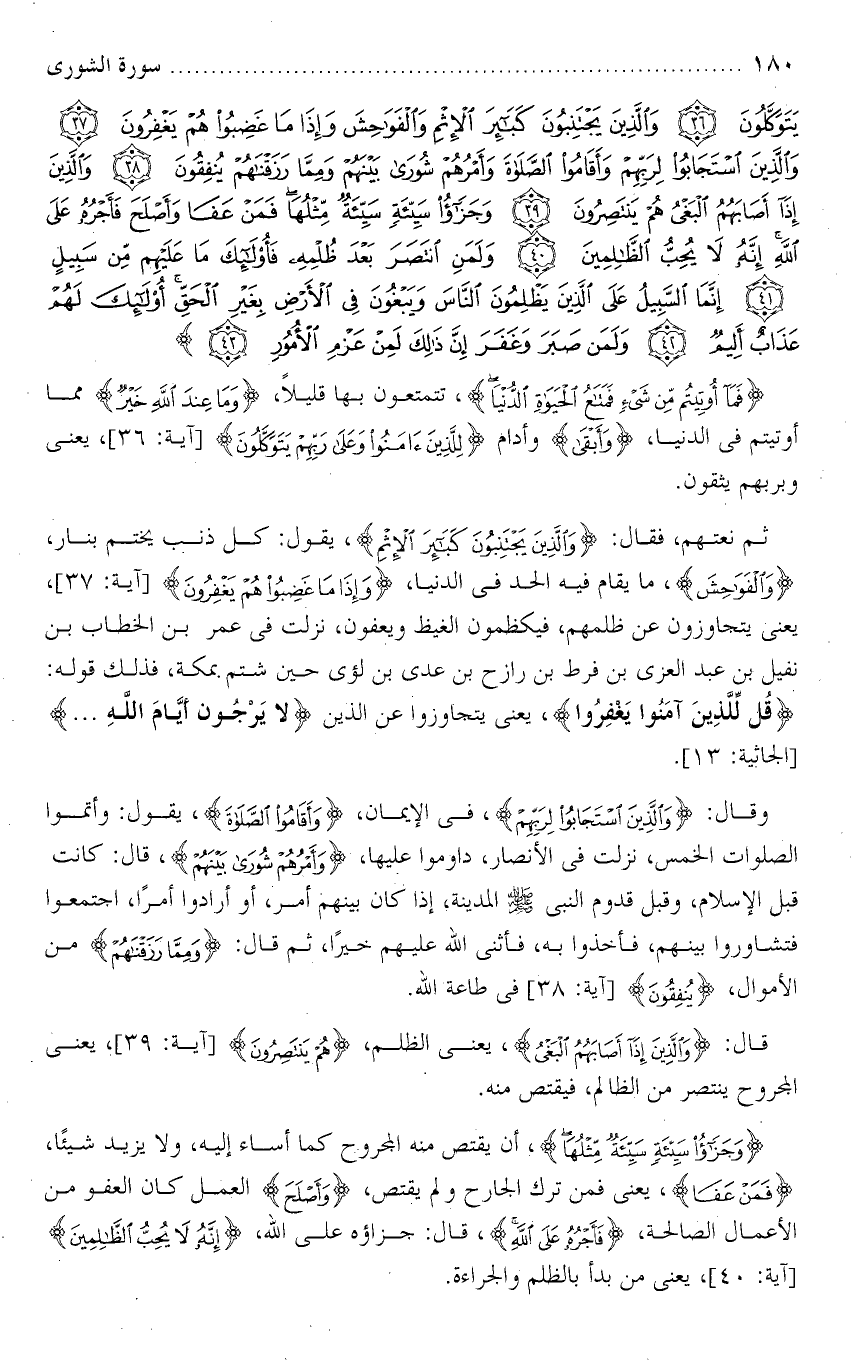 ١٨٠ ........................................................................ سورة الشورى
يَتَوَكَّلُونَ ﴿٣٦﴾ وَالَّذِينَ يَجْتَنِبُونَ كَبَائِرَ الْإِثْمِ وَالْفَوَاحِشَ وَإِذَا مَا غَضِبُوا هُمْ يَغْفِرُونَ ﴿٣٧﴾
وَالَّذِينَ اسْتَجَابُوا لِرَبِّهِمْ وَأَقَامُوا الصَّلَاةَ وَأَمْرُهُمْ شُورَىٰ بَيْنَهُمْ وَمِمَّا رَزَقْنَاهُمْ يُنفِقُونَ ﴿٣٨﴾ وَالَّذِينَ
إِذَا أَصَابَهُمُ الْبَغْيُ هُمْ يَنتَصِرُونَ ﴿٣٩﴾ وَجَزَاؤُا سَيِّئَةٍ سَيِّئَةٌ مِّثْلُهَا ۖ فَمَنْ عَفَا وَأَصْلَحَ فَأَجْرُهُ عَلَى
اللَّهِ ۚ إِنَّهُ لَا يُحِبُّ الظَّالِمِينَ ﴿٤٠﴾ وَلَمَنِ انتَصَرَ بَعْدَ ظُلْمِهِ فَأُولَٰئِكَ مَا عَلَيْهِم مِّن سَبِيلٍ
﴿٤١﴾ إِنَّمَا السَّبِيلُ عَلَى الَّذِينَ يَظْلِمُونَ النَّاسَ وَيَبْغُونَ فِي الْأَرْضِ بِغَيْرِ الْحَقِّ ۚ أُولَٰئِكَ لَهُمْ
عَذَابٌ أَلِيمٌ ﴿٤٢﴾ وَلَمَن صَبَرَ وَغَفَرَ إِنَّ ذَٰلِكَ لَمِنْ عَزْمِ الْأُمُورِ ﴿٤٣﴾ ﴾
﴿فَمَا أُوتِيتُم مِّن شَيْءٍ فَمَتَاعُ الْحَيَاةِ الدُّنْيَا ۖ﴾، تتمتعون بها قليلاً، ﴿وَمَا عِندَ اللَّهِ خَيْرٌ﴾ مما
أوتيتم فى الدنيا، ﴿وَأَبْقَىٰ﴾ وأدام ﴿لِلَّذِينَ ءَامَنُوا وَعَلَىٰ رَبِّهِمْ يَتَوَكَّلُونَ﴾ [آية: ٣٦]، يعنى
وبربهم يثقون.
ثم نعتهم، فقال: ﴿وَالَّذِينَ يَجْتَنِبُونَ كَبَائِرَ الْإِثْمِ﴾، يقول: كل ذنب يختم بنار،
﴿وَالْفَوَاحِشَ﴾، ما يقام فيه الحد فى الدنيا، ﴿وَإِذَا مَا غَضِبُوا هُمْ يَغْفِرُونَ﴾ [آية: ٣٧]،
يعنى يتجاوزون عن ظلمهم، فيكظمون الغيظ ويعفون، نزلت فى عمر بن الخطاب بن
نفيل بن عبد العزى بن فرط بن رازح بن عدى بن لؤى حين شتم بمكة، فذلك قوله:
﴿قُل لِّلَّذِينَ آمَنُوا يَغْفِرُوا﴾، يعنى يتجاوزوا عن الذين ﴿لا يَرْجُون أيَّامَ اللَّهِ ...﴾
[الجاثية: ١٣].
وقال: ﴿وَالَّذِينَ اسْتَجَابُوا لِرَبِّهِمْ﴾، فى الإيمان، ﴿وَأَقَامُوا الصَّلَاةَ﴾، يقول: وأتموا
الصلوات الخمس، نزلت فى الأنصار، داوموا عليها، ﴿وَأَمْرُهُمْ شُورَىٰ بَيْنَهُمْ﴾، قال: كانت
قبل الإسلام، وقبل قدوم النبى ﷺ المدينة، إذا كان بينهم أمر، أو أرادوا أمرًا، اجتمعوا
فتشاوروا بينهم، فأخذوا به، فأثنى الله عليهم خيرًا، ثم قال: ﴿وَمِمَّا رَزَقْنَاهُمْ﴾ من
الأموال، ﴿يُنفِقُونَ﴾ [آية: ٣٨] فى طاعة الله.
قال: ﴿وَالَّذِينَ إِذَا أَصَابَهُمُ الْبَغْيُ﴾، يعنى الظلم، ﴿هُمْ يَنتَصِرُونَ﴾ [آية: ٣٩]، يعنى
المجروح ينتصر من الظالم، فيقتص منه.
﴿وَجَزَاؤُا سَيِّئَةٍ سَيِّئَةٌ مِّثْلُهَا ۖ﴾، أن يقتص منه المجروح كما أساء إليه، ولا يزيد شيئًا،
﴿فَمَنْ عَفَا﴾، يعنى فمن ترك الجارح ولم يقتص، ﴿وَأَصْلَحَ﴾ العمل كان العفو من
الأعمال الصالحة، ﴿فَأَجْرُهُ عَلَى اللَّهِ ۚ﴾، قال: جزاؤه على الله، ﴿إِنَّهُ لَا يُحِبُّ الظَّالِمِينَ﴾
[آية: ٤٠]، يعنى من بدأ بالظلم والجراءة.